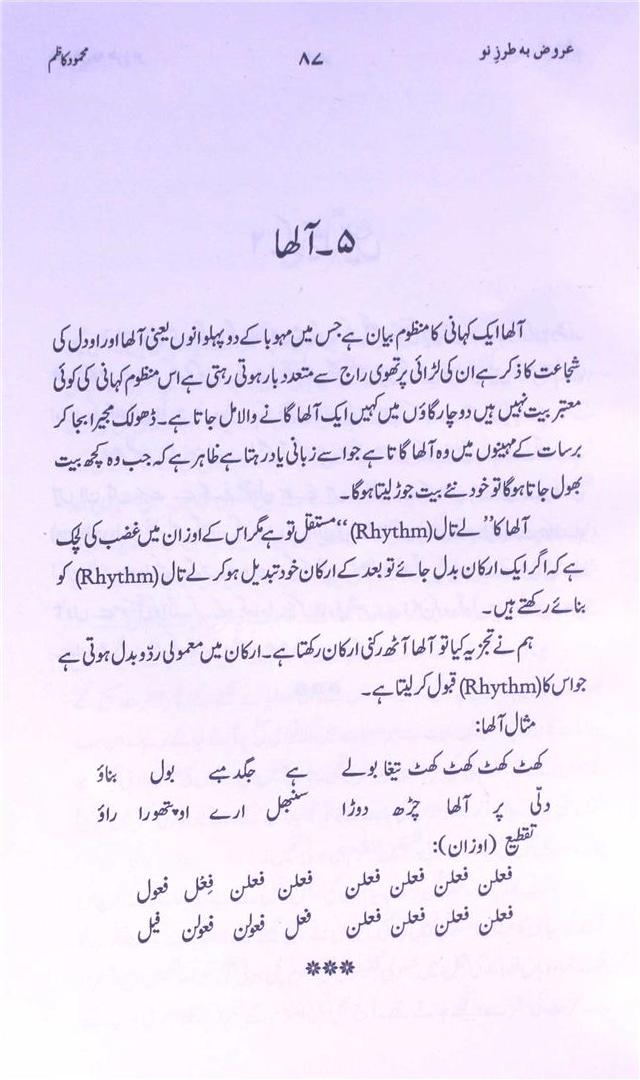 عروض بہ طرزِ نو
۸۷
محمود کاظم
۵۔ آلھا
آلھا ایک کہانی کا منظوم بیان ہے جس میں مہوبا کے دو پہلوانوں یعنی آلھا اور اودل کی
شجاعت کا ذکر ہے ان کی لڑائی پرتھوی راج سے متعدد بار ہوتی رہتی ہے اس منظوم کہانی کی کوئی
معتبر بیت نہیں ہیں دو چار گاؤں میں کہیں ایک آلھا گانے والا مل جاتا ہے۔ ڈھولک مجیرا بجا کر
برسات کے مہینوں میں وہ آلھا گاتا ہے جو اسے زبانی یاد رہتا ہے ظاہر ہے کہ جب وہ کچھ بیت
بھول جاتا ہوگا تو خود نئے بیت جوڑ لیتا ہوگا۔
آلھا کا ”لے تال (Rhythm)“ مستقل تو ہے مگر اس کے اوزان میں غضب کی لچک
ہے کہ اگر ایک ارکان بدل جائے تو بعد کے ارکان خود تبدیل ہو کر لے تال (Rhythm) کو
بنائے رکھتے ہیں۔
ہم نے تجزیہ کیا تو آلھا آٹھ رکنی ارکان رکھتا ہے۔ ارکان میں معمولی ردّ و بدل ہوتی ہے
جو اس کا (Rhythm) قبول کر لیتا ہے۔
مثال آلھا:
کھٹ کھٹ کھٹ کھٹ تیغا بولے ہے جگدمبے بول بناؤ
دلّی پر آلھا چڑھ دوڑا سنبھل ارے او پتھورا راؤ
تقطیع (اوزان):
فعلن فعلن فعلن فعلن فعلن فعلن فِعْل فعول
فعلن فعلن فعلن فعلن فعل فعولن فعولن فیل
***